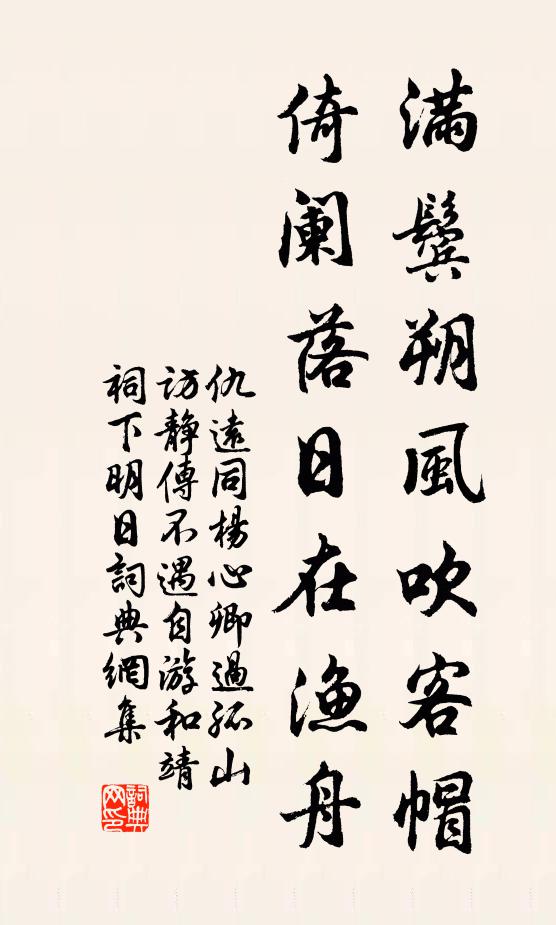 滿鬢朔風吹客帽
倚闌落日在漁舟
仇遠同楊心卿過孤山
訪靜傳不遇自游和靖
祠下明日詞典網集
詞典
网印